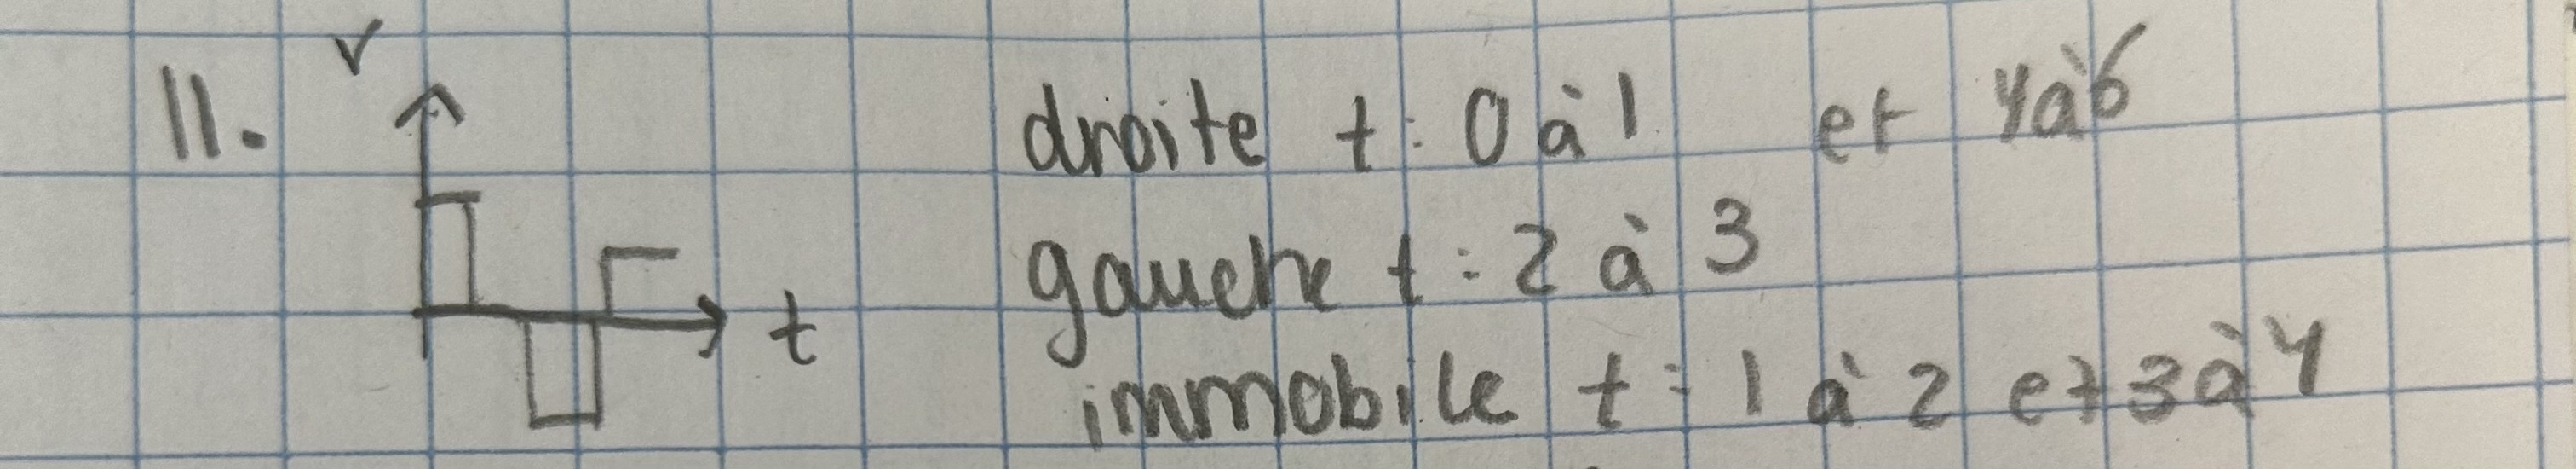 11. v
droite t: 0 à 1 et 4 à 6
gauche t: 2 à 3
t
immobile t: 1 à 2 et 3 à 4